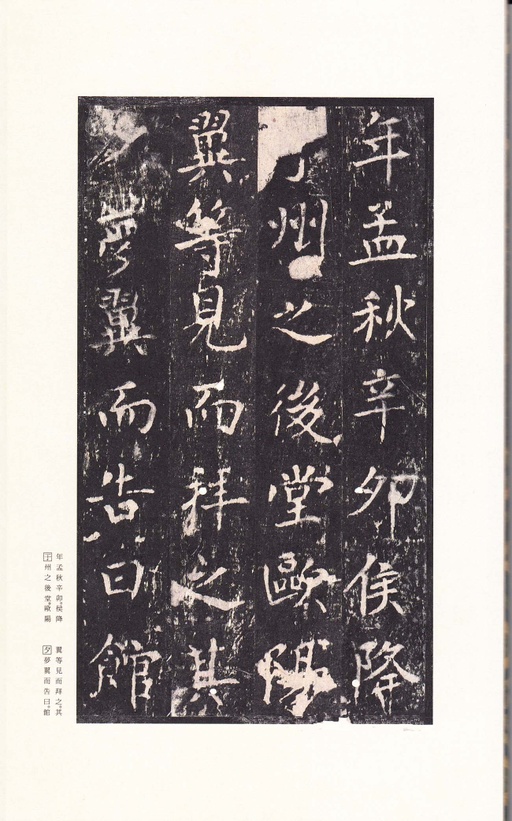 年孟秋辛卯侯降
于州之後堂歐陽
翼等見而拜之其
夕夢翼而告曰館
年孟秋辛卯。侯降
于州之後堂。歐陽
翼等見而拜之。其
夕夢翼而告曰。館